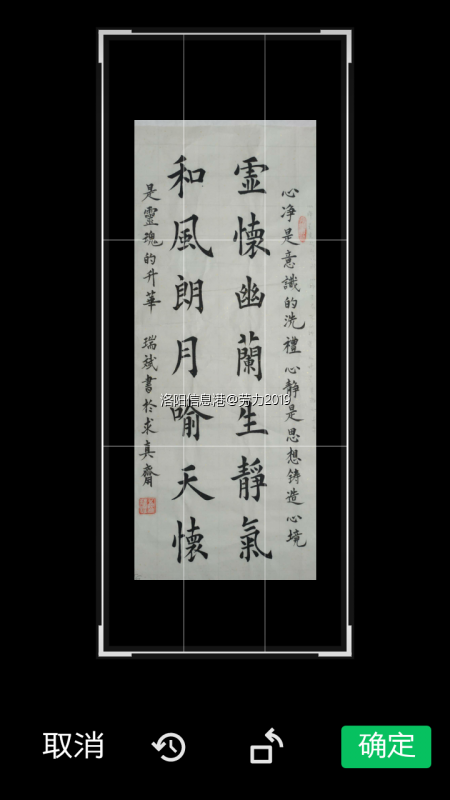 心净是意識的洗禮心靜是思想鋳造心境
虛懷幽蘭生靜氣
和風朗月喻天懷
是靈瑰的升華 瑞斌書於求真齋
洛阳信息港@劳力2019
取消
确定